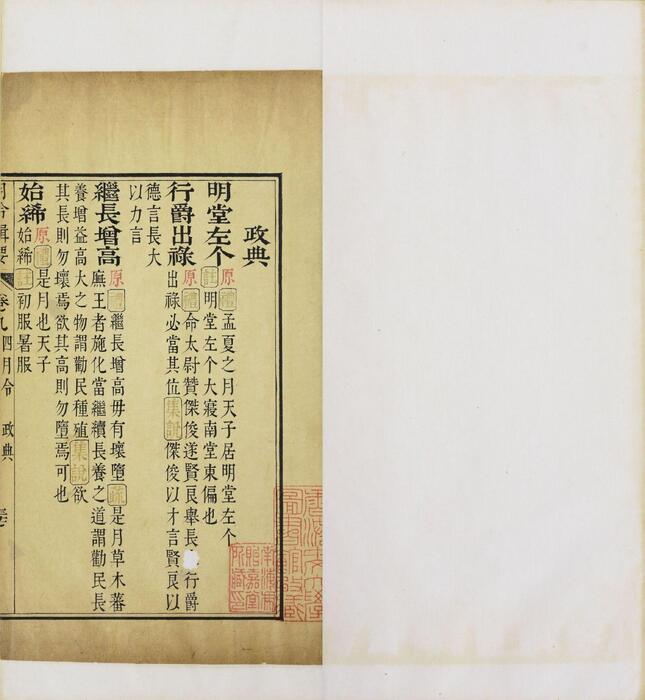 政典
明堂左个
原禮孟夏之月天子居明堂左个
註明堂左个大寢南堂東偏也
行爵出祿
原禮命太尉贊傑俊遂賢良舉長行爵
出祿必當其位集說傑俊以才言賢良以
德言長大
以力言
繼長增高
原禮繼長增高毋有壞墮疏是月草木蕃
廡王者施化當繼續長養之道謂勸民長
養增益高大之物謂勸民種殖集說欲
其長則勿壞焉欲其高則勿墮焉可也
始絺
原禮是月也天子
始絺註初服暑服
月令輯要 卷九 四月令 政典